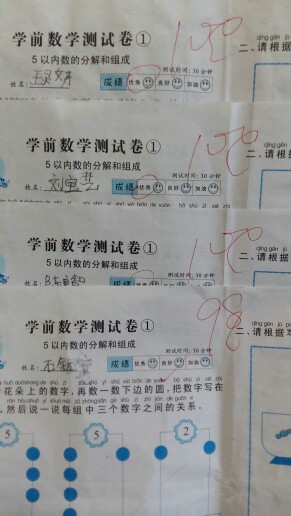 学前数学测试卷① 100
测试时间:30分钟
5以内数的分解和组成
姓名: 成绩 优秀 良好 加油
qǐng gēn jù
二、请根据
学前数学测试卷① 100
测试时间:30分钟
5以内数的分解和组成
姓名: 成绩 优秀 良好 加油
qǐng gēn jù
二、请根据
学前数学测试卷① 100
测试时间:30分钟
5以内数的分解和组成
姓名: 成绩 优秀 良好 加油
qǐng gēn jù
二、请根据
学前数学测试卷① 98
测试时间:30分钟
5以内数的分解和组成
姓名: 成绩 优秀 良好 加油
qǐng gēn jù
二、请根据
花朵上的数字,再数一数下边的圆,把数字写在
,然后说一说每组中三个数字之间的关系。
5 5 2